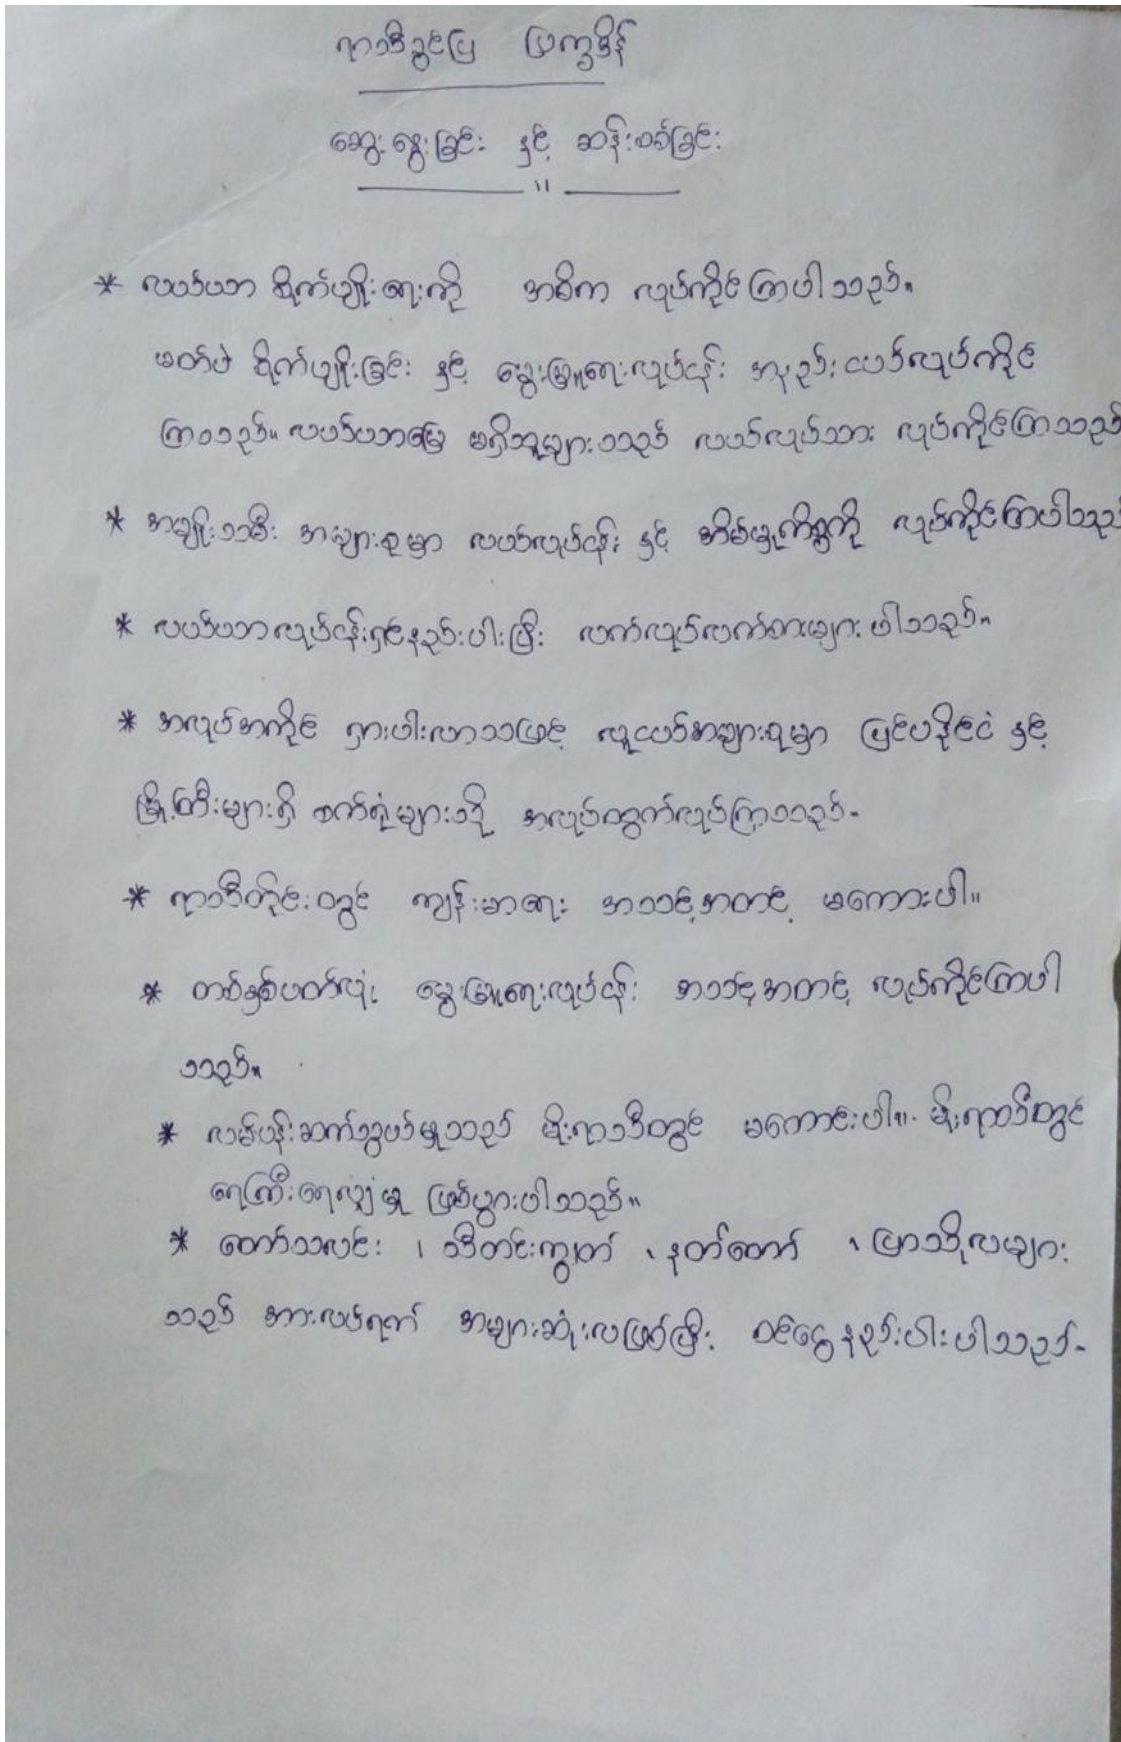 ရာသီခွင်ပြ ပြက္ခဒိန်
ဆွေးနွေးခြင်း နှင့် ဆန်းစစ်ခြင်း
* လယ်ယာ စိုက်ပျိုးရေးကို အဓိက လုပ်ကိုင်ကြပါသည်။
မတ်ပဲ စိုက်ပျိုးခြင်း နှင့် မွေးမြူရေးလုပ်ငန်း အနည်းငယ်လုပ်ကိုင်
ကြသည်။ လယ်ယာမြေ မရှိသူများသည် လယ်လုပ်သား လုပ်ကိုင်ကြသည်
* အမျိုးသမီး အများစုမှာ လယ်လုပ်ငန်း နှင့် အိမ်မှုကိစ္စကို လုပ်ကိုင်ကြပါသည်
* လယ်ယာလုပ်ငန်းရှင်နည်းပါးပြီး လက်လုပ်လက်စားများပါသည်။
* အလုပ်အကိုင် ရှားပါးလာသဖြင့် လူငယ်အများစုမှာ ပြင်ပနိုင်ငံ နှင့်
မြို့ကြီးများရှိ စက်ရုံများသို့ အလုပ်ထွက်လုပ်ကြသည်။
* ရာသီတိုင်းတွင် ကျန်းမာရေး အသင့်အတင့် မကေားပါ။
* တစ်နှစ်ပတ်လုံး မွေးမြူရေးလုပ်ငန်း အသင့်အတင့် လုပ်ကိုင်ကြပါ
သည်။
* လမ်းပန်းဆက်သွယ်မှုသည် မိုးရာသီတွင် မကောင်းပါ။ မိုးရာသီတွင်
ရေကြီးရေလျှံမှု ဖြစ်ပွားပါသည်။
* တော်သလင်း ၊ သီတင်းကျွတ် ၊ နတ်တော် ၊ ပြာသိုလများ
သည် အားလပ်ရက် အများဆုံးလဖြစ်ပြီး ဝင်ငွေနည်းပါးပါသည်။